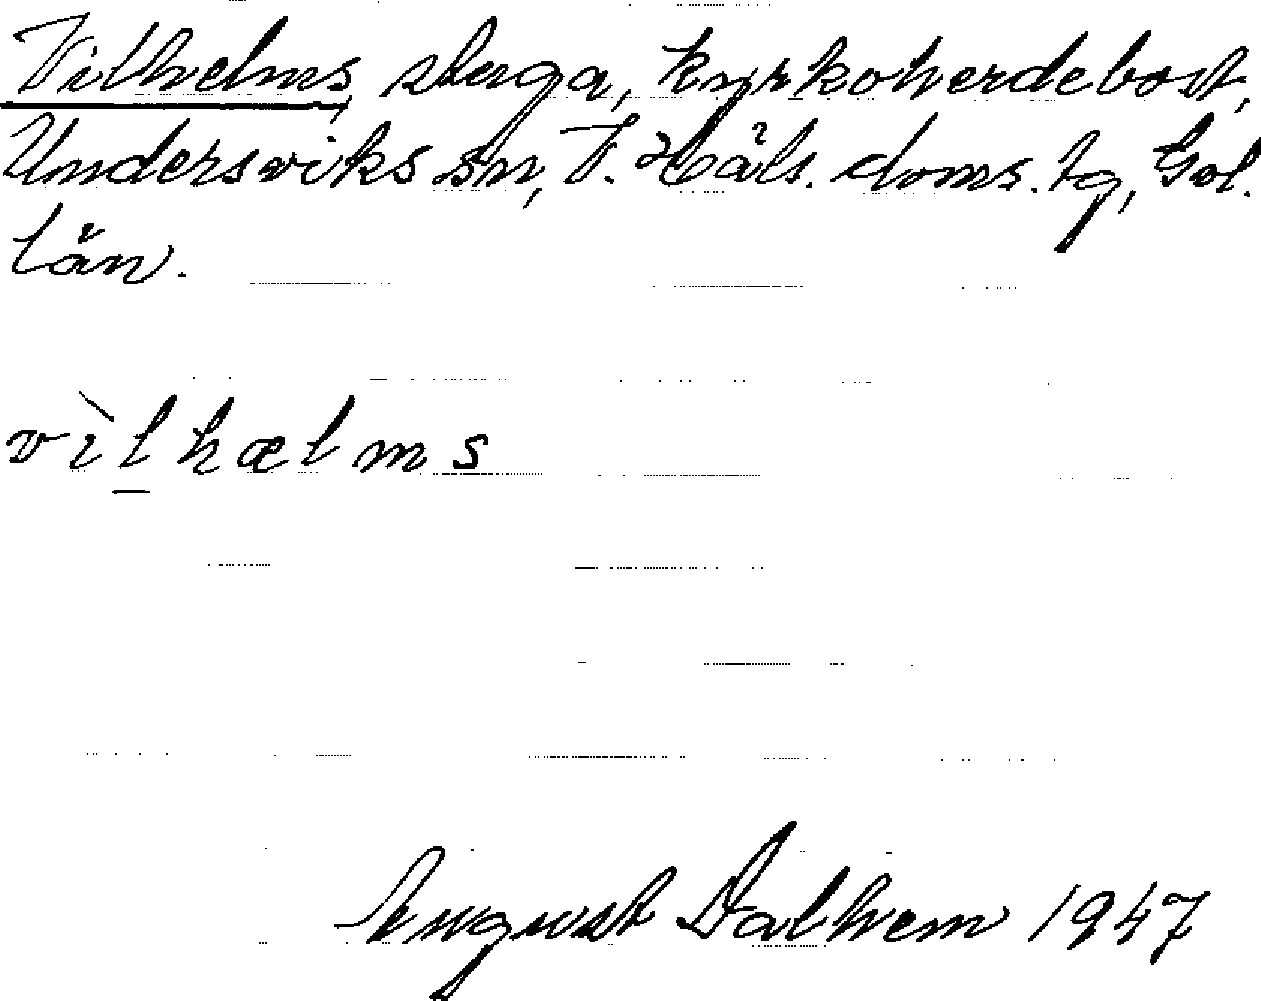 Vilhelms, stuga, kyrkoherdebost.,
Undersviks sn, V. Häls. doms. tg, Gvl.
län.
vìlhælms
August Dalhem 1947